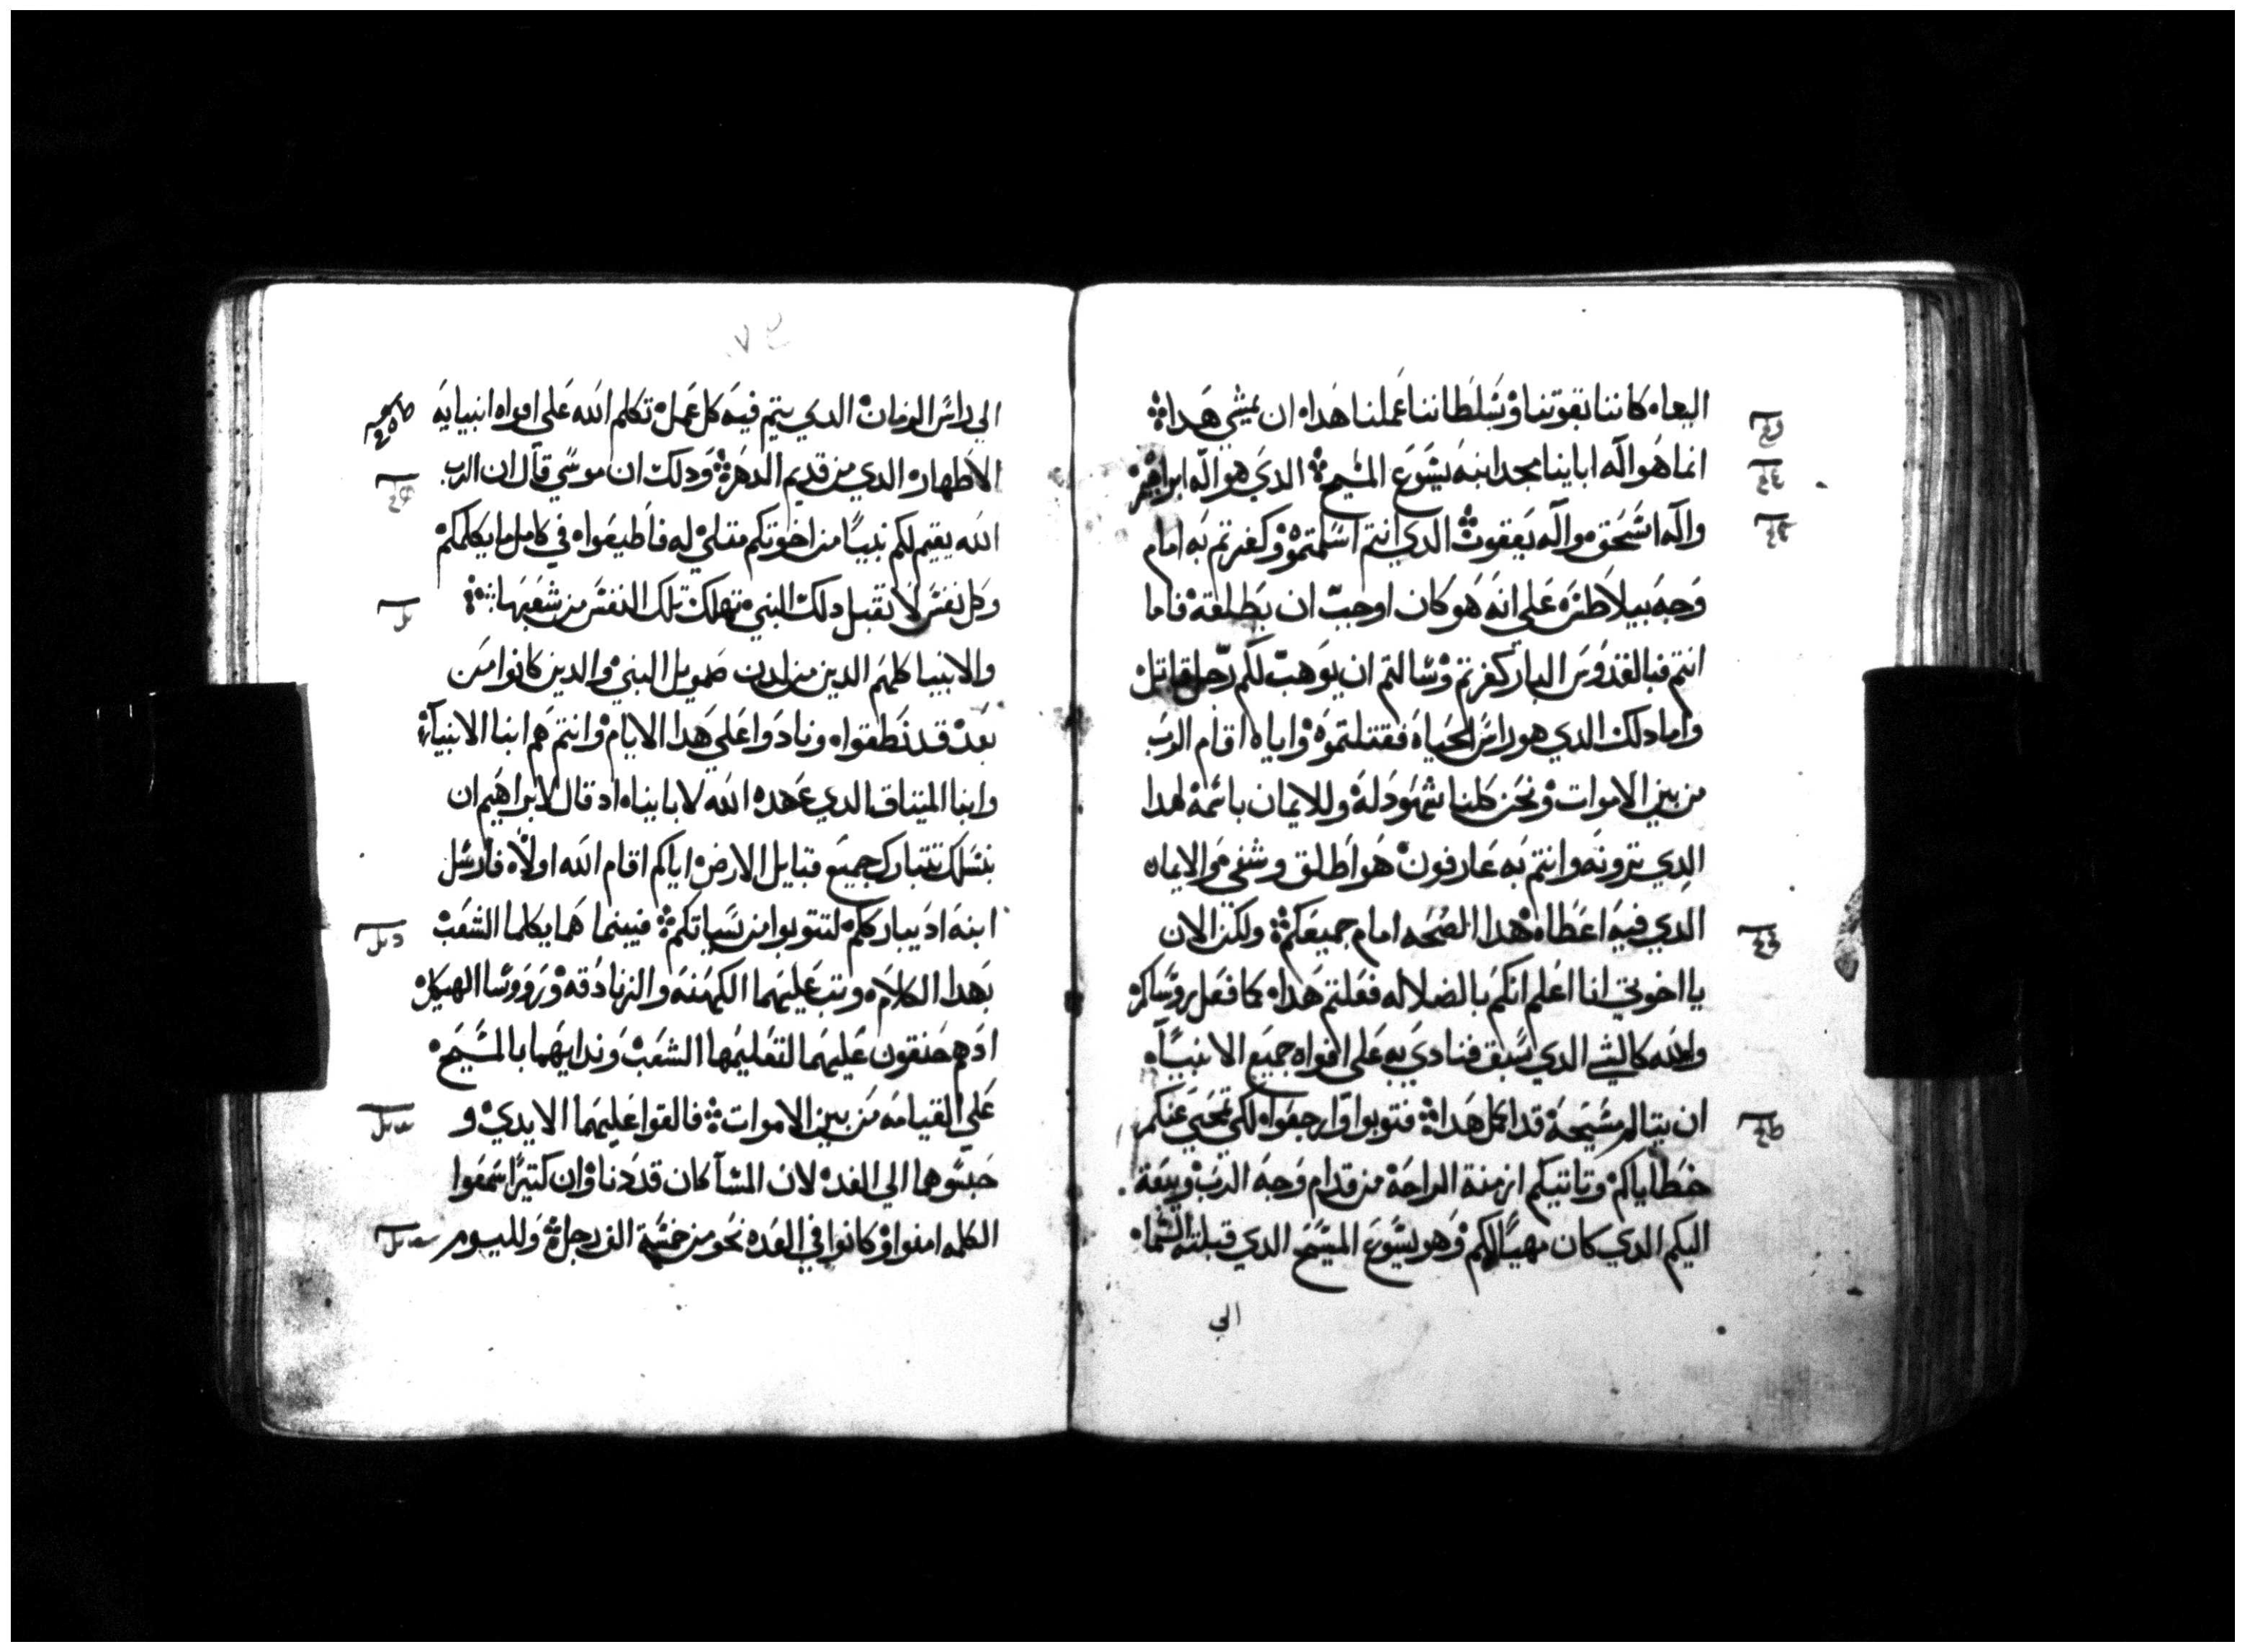 الينا ه كاننا بقوتنا وسلطاننا عملنا هداه ان يمشي هدا ه
انما هو اله اباينا مجد ابنه يسوع المسيح الدي هو اله ابراهيم
واله اسحق واله يعقوب الدي انتم اسلمتموه وكفرتم به امام
وجه بيلاطس ه علي انه هو كان اوجب ان يطلقه فاما
انتم فبالقدوس البار كفرتم وسالتم ان يوهب لكم رجل قاتل
واما دلك الدي هو راس الحياه فقتلتموه واياه اقام الرب
من بين الاموات ونحن كلنا شهود له وللايمان باسمه لهدا
الدي ترونه وانتم به عارفون هو اطلق وشفي والايمان
الدي فيه اعطاه هدا الصحه امام جميعكم ولكن الان
يا اخوتي انا اعلم انكم بالضلاله فعلتم هداه كما فعل روساكم
والله كالشي الدي سبق فنادي به علي افواه جميع الانبياه
ان يتالم مسيحه قد اكمل هدا فتوبوا وارجعوا لكي تمحي عنكم
خطاياكم وتاتيكم ازمنة الراحه من قدام وجه الرب ويبعث
اليكم الدي كان مهيا لكم وهو يسوع المسيح الدي قبلته السماه
الي
الي راس الزمان الدي يتم فيه كل عمل تكلم الله علي افواه انبيايه
الاطهار والدي من قديم الدهر ودلك ان موسي قال ان الرب
الله يقيم لكم نبيا من اخوتكم متلي له فاطيعواه في كامل ما يكلمكم
وكل نفس لا تقبل دلك النبي تهلك تلك النفس من شعبها
والانبيا كلهم الدين من لدن صمويل النبي والدين كانوا من
بعد قد نطقواه ونادوا علي هدا الايام وانتم هم ابنا الانبياه
وابنا الميتاق الدي عهده الله لاباينا ه اد قال لابراهيم ان
بنسلك تتبارك جميع قبايل الارض اياكم اقام الله اولاه فارسل
ابنه اد يبارككم لتتوبوا من سياتكم فبينما هما يكلما الشعب
بهدا الكلام وتب عليهما الكهنه والزنادقه وروسا الهيكل
ادهم حنقون عليهما لتعليمها الشعب وندايهما بالمسيح
علي القيامه من بين الاموات فالقوا عليهما الايدي و
حبسوهما الي الغد لان المسا كان قد دنا وان كتيرا سمعوا
الكلمه امنوا وكانوا في العده نحو من خمسة الف رجل ولليوم